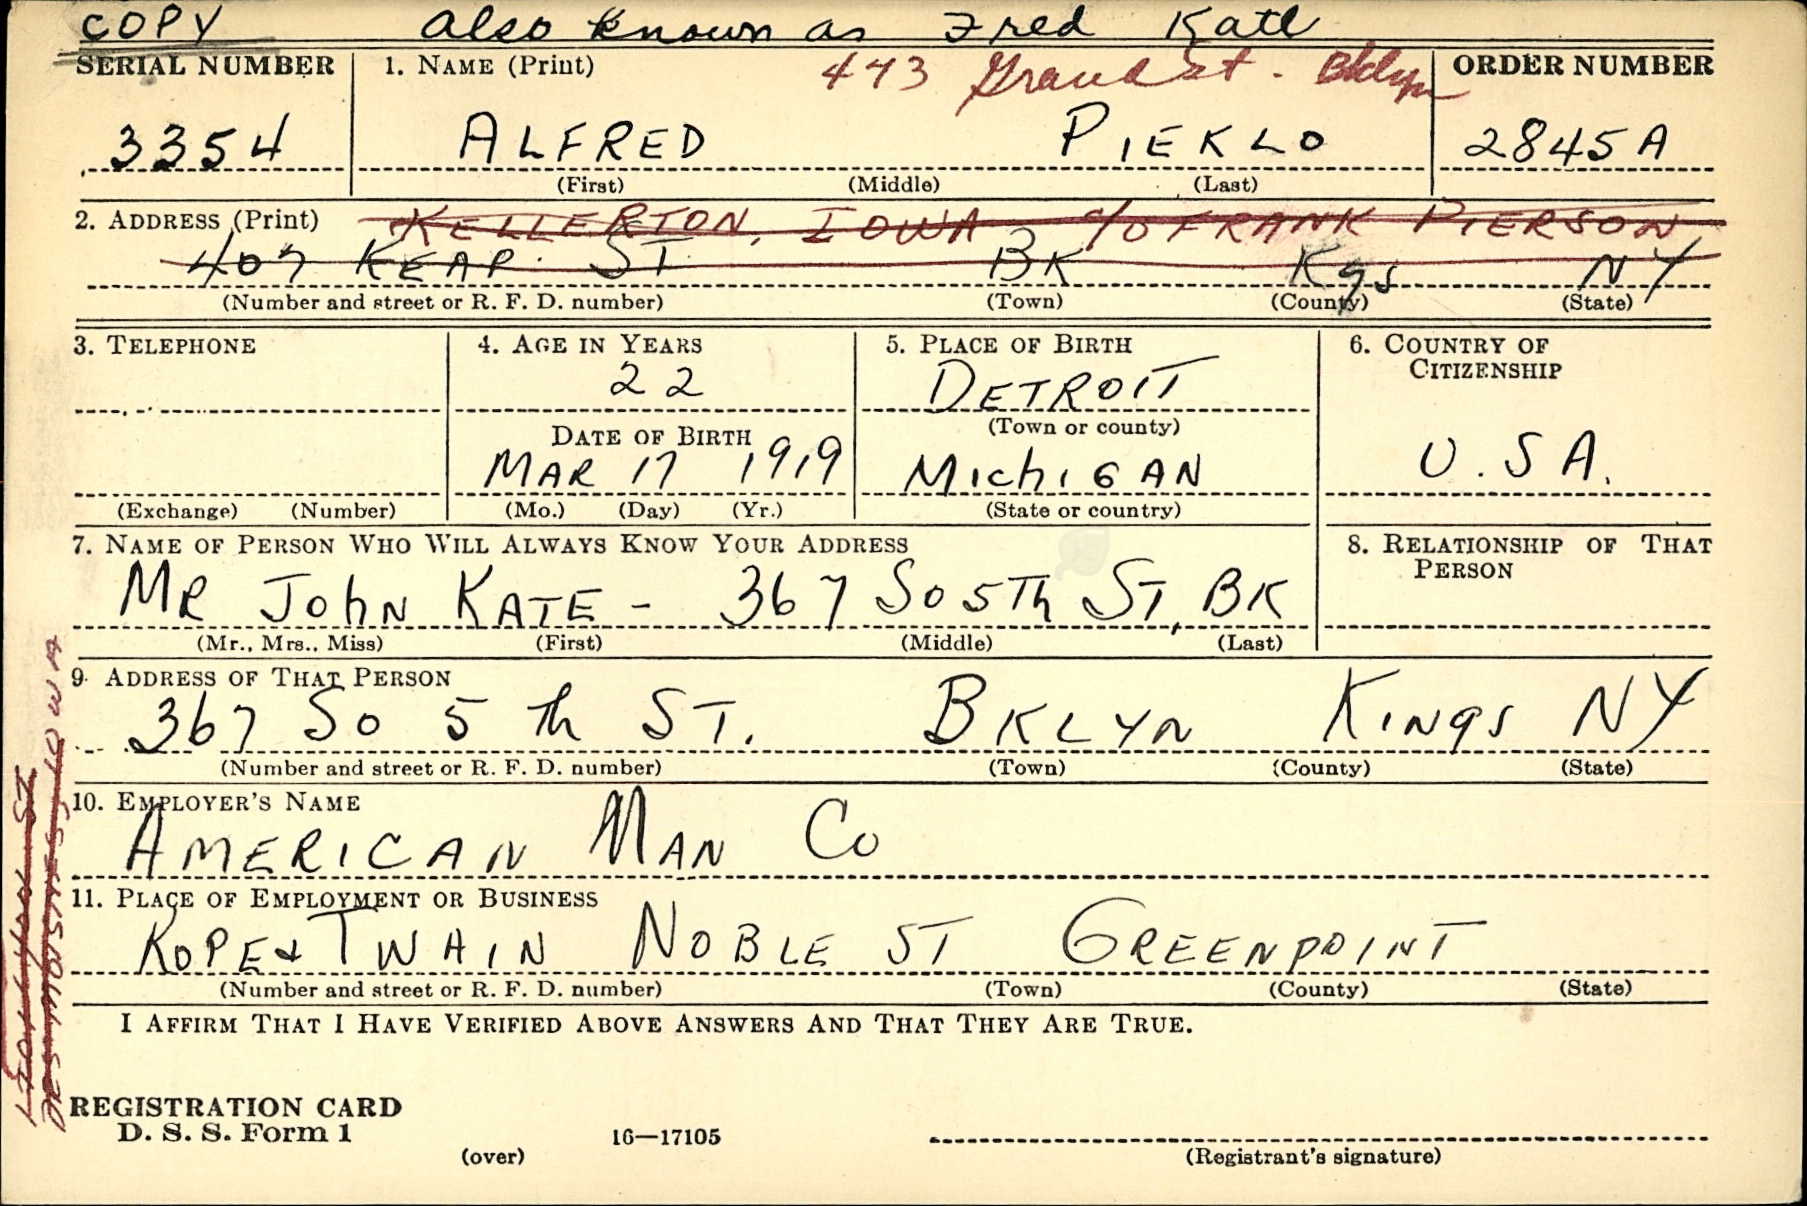 COPY also known as Fred Katl
SERIAL NUMBER 1. NAME (Print) 473 Grand St. Bklyn ORDER NUMBER
3354 ALFRED PIEKLO 2845A
(First) (Middle) (Last)
2. ADDRESS (Print) KELLERTON, IOWA c/o FRANK PIERSON
407 KEAP ST BK Kgs NY
(Number and street or R. F. D. number) (Town) (County) (State)
3. TELEPHONE 4. AGE IN YEARS 5. PLACE OF BIRTH 6. COUNTRY OF
CITIZENSHIP
22 DETROIT
(Town or county)
DATE OF BIRTH
MAR 17 1919 MichIGAN U.S.A.
(Exchange) (Number) (Mo.) (Day) (Yr.) (State or country)
7. NAME OF PERSON WHO WILL ALWAYS KNOW YOUR ADDRESS 8. RELATIONSHIP OF THAT
PERSON
MR JohN KATE - 367 So 5Th ST, BK
(Mr., Mrs., Miss) (First) (Middle) (Last)
9. ADDRESS OF THAT PERSON
367 So 5 Th ST. BKLYN KINgS NY
(Number and street or R. F. D. number) (Town) (County) (State)
10. EMPLOYER'S NAME
AMERICAN MAN Co
11. PLACE OF EMPLOYMENT OR BUSINESS
ROPE & TWAIN NOBLE ST GREENPOINT
(Number and street or R. F. D. number) (Town) (County) (State)
I AFFIRM THAT I HAVE VERIFIED ABOVE ANSWERS AND THAT THEY ARE TRUE.
REGISTRATION CARD
D. S. S. Form 1
(over) 16—17105 (Registrant's signature)
DES MOISNES, IOWA